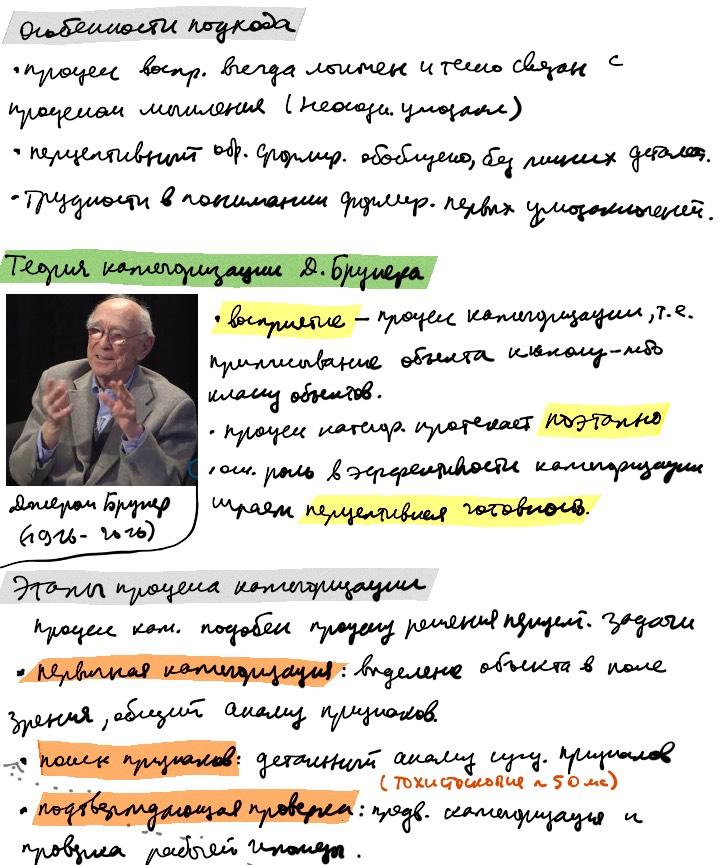 Особенности подхода
• процесс воспр. всегда логичен и тесно связан с
процессом мышления (неосозн. умозакл)
• перцептивный обр. сформир. обобщено, без лишних деталей.
• трудности в понимании формир. первых умозаключений.
Теория категоризации Д. Брунера
• восприятие – процесс категоризации, т.е.
приписывание объекта к какому-либо
классу объектов.
• процесс категор. протекает поэтапно
• осн. роль в эффективности категоризации
играет перцептивная готовность.
Джером Брунер
(1916- 2016)
Этапы процесса категоризации
процесс кат. подобен процессу решения перцепт. задачи
• первичная категоризация: выделение объекта в поле
зрения, общий анализ признаков.
• поиск признаков: детальный анализ сущ. признаков
(тохистоскопие ~ 50 мс)
• подтверждающая проверка: предв. категоризация и
проверка рабочей гипотезы.